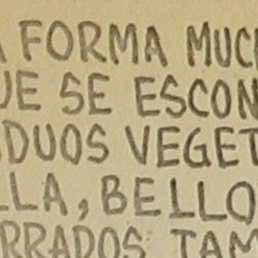 A FORMA MUCH
UE SE ESCON
DUOS VEGET
LLA, BELLO
RRADOS TAM